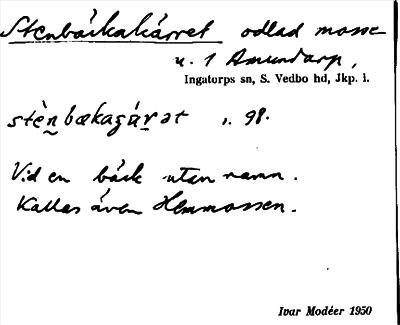 Stenbäckakärret odlad mosse
u. 1 Amundarp,
Ingatorps sn, S. Vedbo hd, Jkp. l.
stèn̬bækaçár̬ət 1. 98.
Vid en bäck utan namn.
Kallas även Hemmossen.
Ivar Modéer 1950